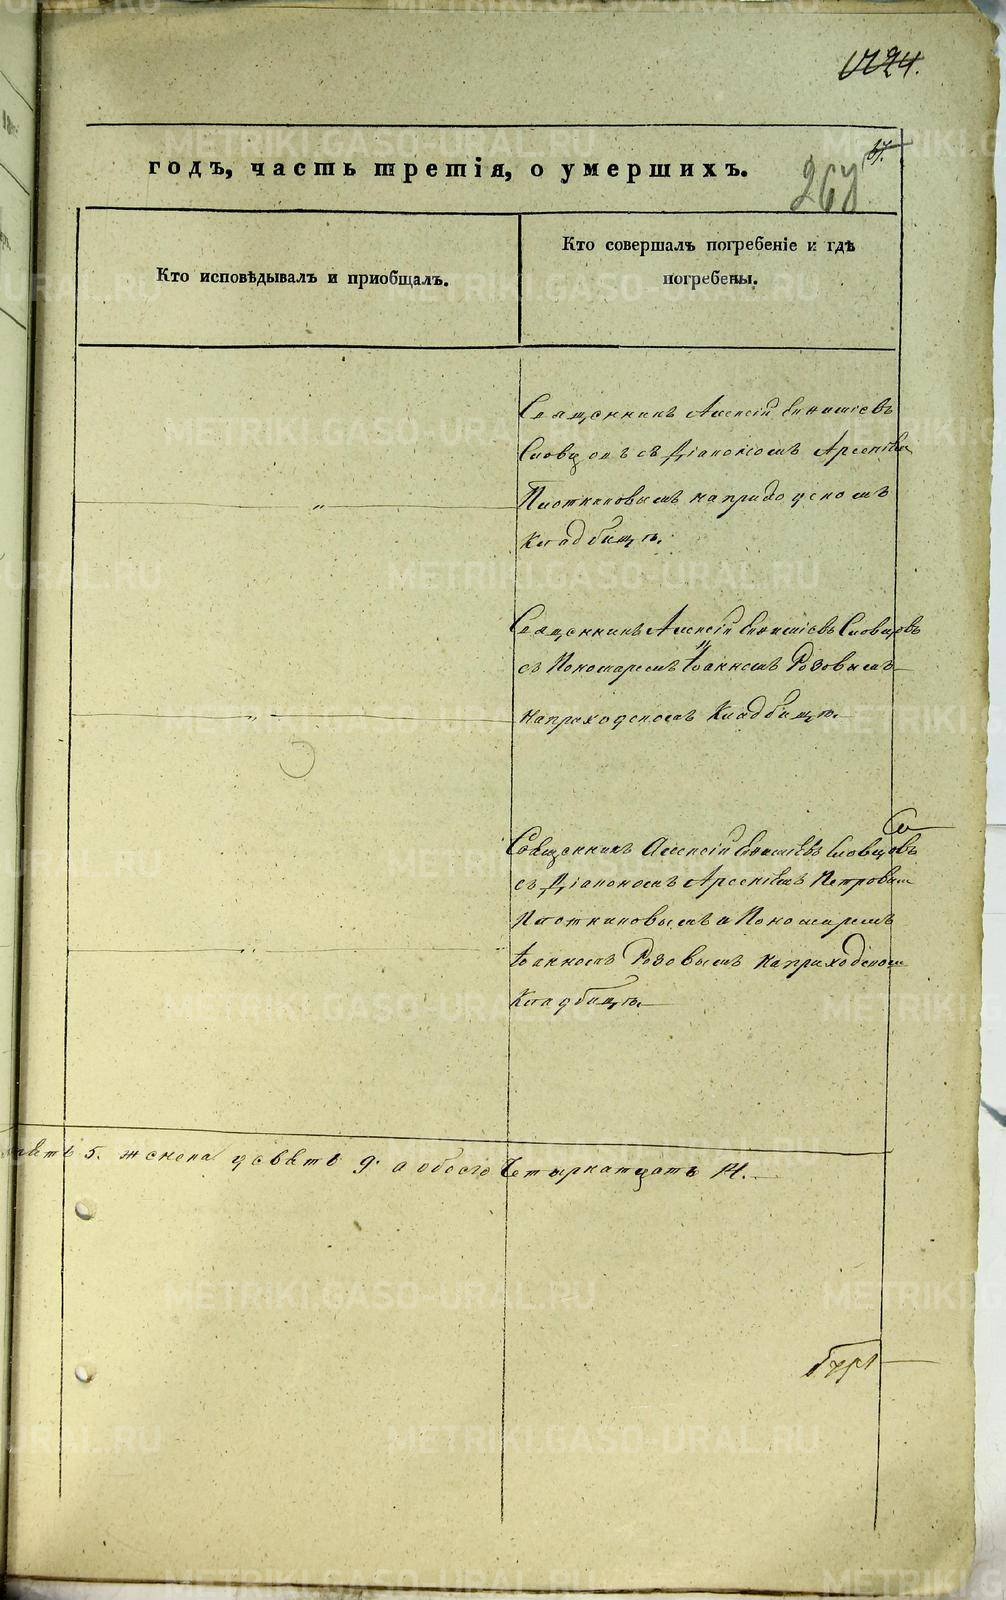 годъ, часть третія, о умершихъ.
Кто исповѣдывалъ и пріобщалъ.
Кто совершалъ погребеніе и гдѣ
погребены.
Священникъ Алексій
Словцовъ съ Діакономъ Арсеніемъ
Плоткиновымъ на приходскомъ
Кладбищѣ.
Священникъ Алексій Словцовъ
съ Пономаремъ Іоанномъ Розовымъ
на приходскомъ Кладбищѣ.
Священникъ Алексій Словцовъ
съ Діакономъ Арсеніемъ Петровым
Плоткиновымъ и Пономаремъ
Іоанномъ Розовымъ на приходском
Кладбищѣ.
5. женска девѣть 9. а обоего Четырнатцать 14.
METRIKI.GASO-URAL.RU